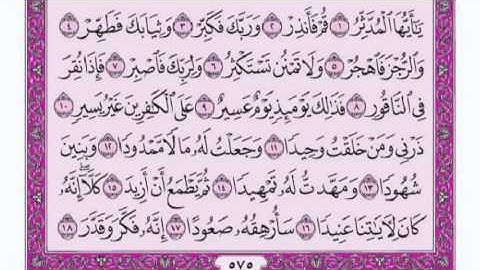 يَٰٓأَيُّهَا ٱلْمُدَّثِّرُ ١ قُمْ فَأَنذِرْ ٢ وَرَبَّكَ فَكَبِّرْ ٣ وَثِيَابَكَ فَطَهِّرْ ٤
وَٱلرُّجْزَ فَٱهْجُرْ ٥ وَلَا تَمْنُن تَسْتَكْثِرُ ٦ وَلِرَبِّكَ فَٱصْبِرْ ٧ فَإِذَا نُقِرَ
فِى ٱلنَّاقُورِ ٨ فَذَٰلِكَ يَوْمَئِذٍ يَوْمٌ عَسِيرٌ ٩ عَلَى ٱلْكَٰفِرِينَ غَيْرُ يَسِيرٍ ١٠
ذَرْنِى وَمَنْ خَلَقْتُ وَحِيدًا ١١ وَجَعَلْتُ لَهُۥ مَالًا مَّمْدُودًا ١٢ وَبَنِينَ
شُهُودًا ١٣ وَمَهَّدتُّ لَهُۥ تَمْهِيدًا ١٤ ثُمَّ يَطْمَعُ أَنْ أَزِيدَ ١٥ كَلَّآ ۖ إِنَّهُۥ
كَانَ لِءَايَٰتِنَا عَنِيدًا ١٦ سَأُرْهِقُهُۥ صَعُودًا ١٧ إِنَّهُۥ فَكَّرَ وَقَدَّرَ ١٨
٥٧٥